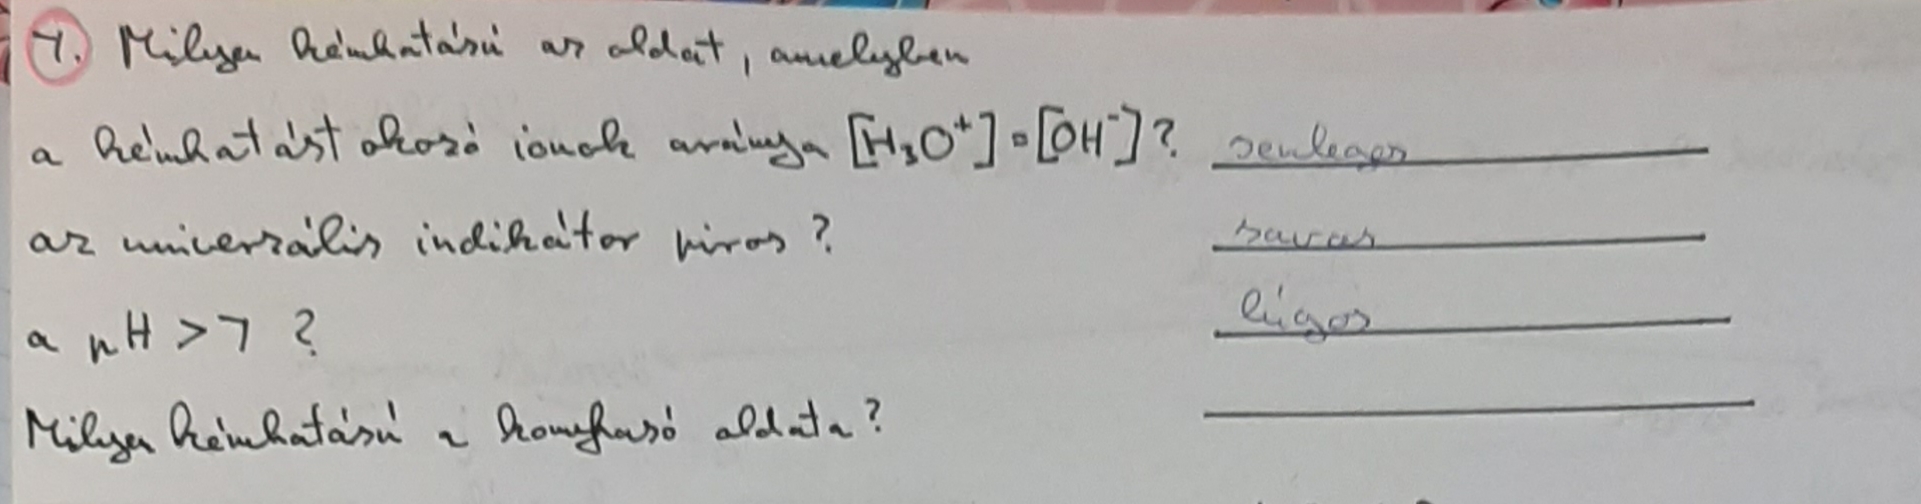 7. Milyen kémhatású az oldat, amelyben
a kémhatást okozó ionok aránya [H₃O⁺] = [OH⁻]? semleges
az univerzális indikátor piros? savas
a pH > 7 ? lúgos
Milyen kémhatású a konyhasó oldata?